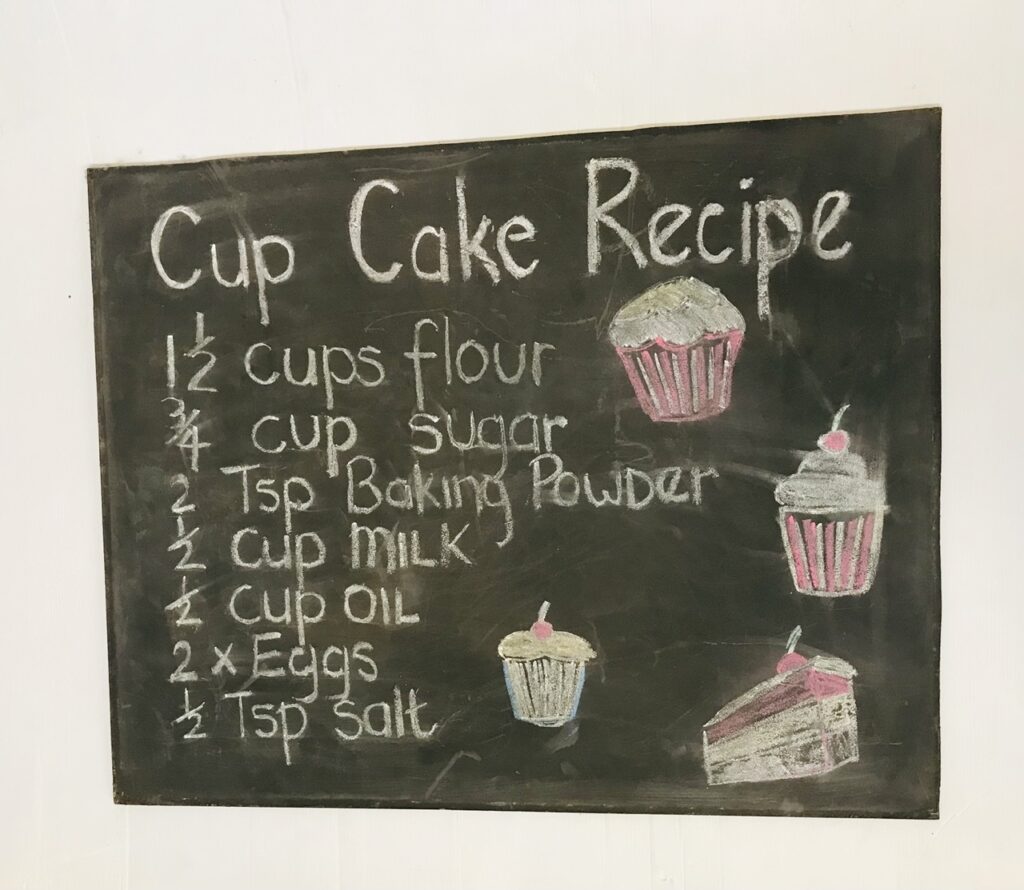 Cup Cake Recipe
1 1/2 cups flour
3/4 cup sugar
2 Tsp Baking Powder
1/2 cup MILK
1/2 cup OIL
2 x Eggs
1/2 Tsp Salt